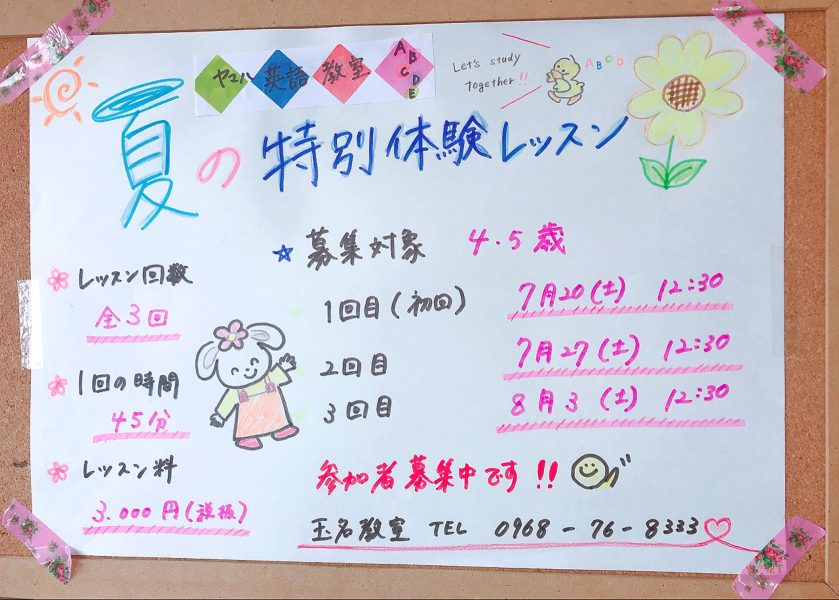 ヤマハ 英語 教室 ABCDE
Let's study together!! ABCD
夏の特別体験レッスン
☆ 募集対象 4・5歳
レッスン回数
全3回
1回の時間
45分
レッスン料
3.000円(税抜)
1回目(初回) 7月20(土) 12:30
2回目 7月27(土) 12:30
3回目 8月3(土) 12:30
参加者募集中です!!
玉名教室 TEL 0968-76-8333